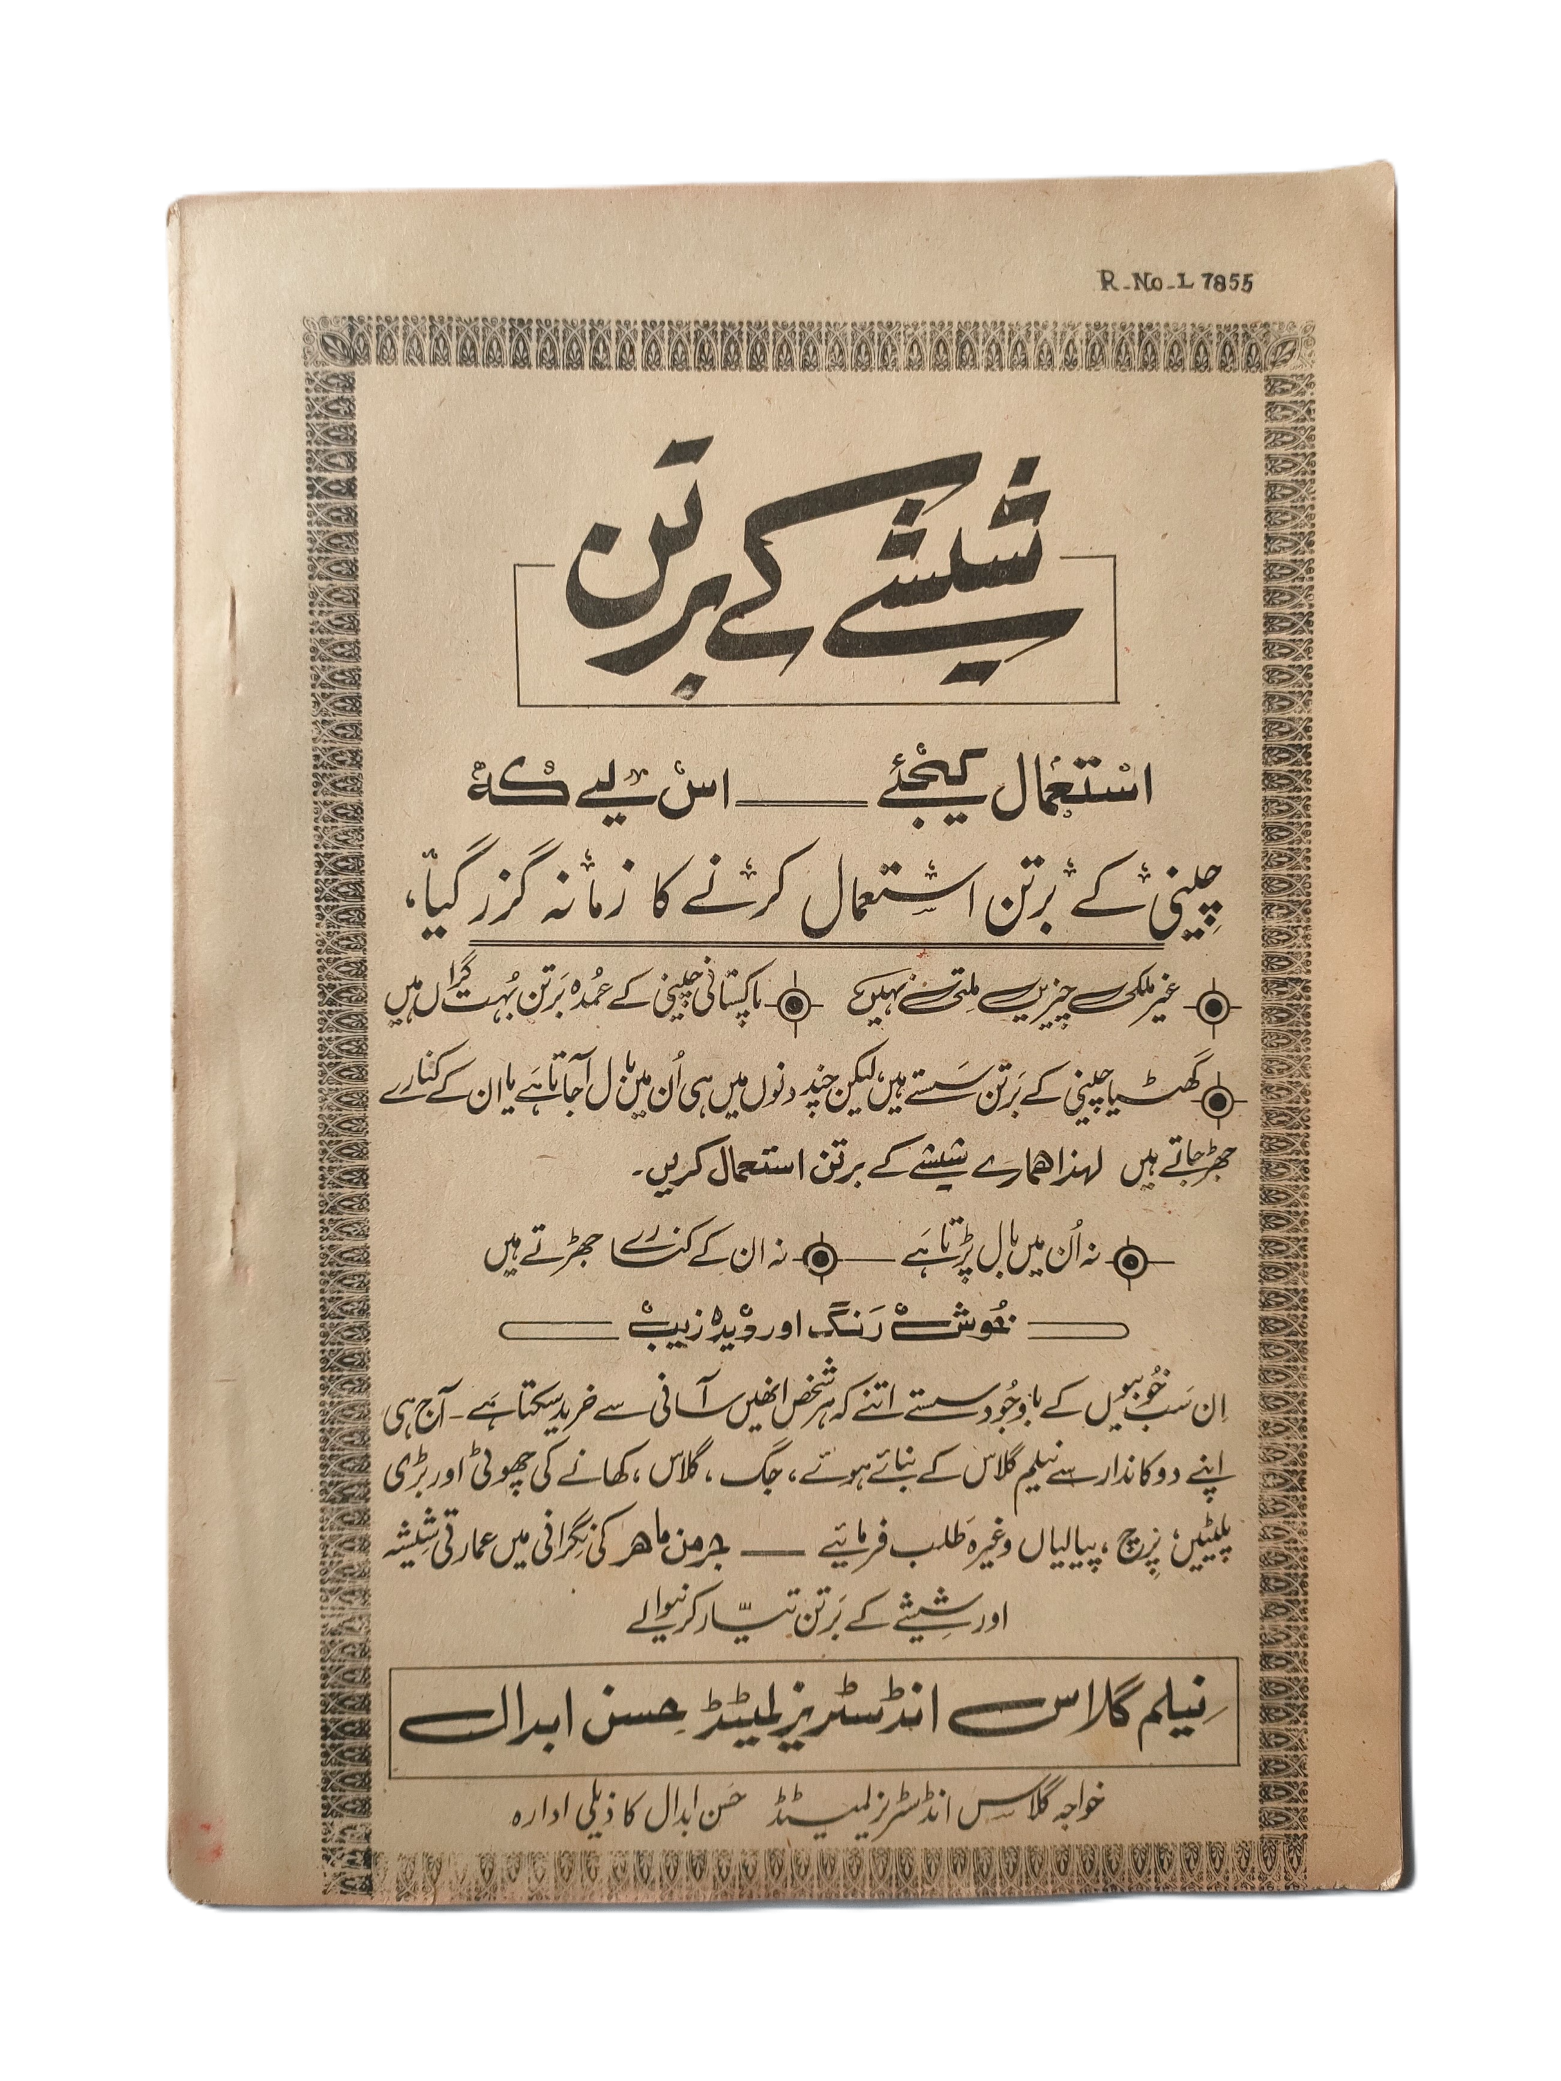 R-No-L 7855
شیشے کے برتن
استعمال کیجئے —— اس لیے کہ
چینی کے برتن استعمال کرنے کا زمانہ گزر گیا،
غیر ملکی چیزیں ملتی نہیں پاکستانی چینی کے عُمدہ بَرتن بُہت گراں ہیں
گھٹیا چینی کے بَرتن سَستے ہیں، لیکن چند دنوں میں ہی اُن میں بال آجاتا ہَے یا ان کے کنارے
جھڑ جاتے ہیں لہذا ہمارے شیشے کے برتن استعمال کریں۔
نہ اُن میں بال پڑتا ہَے —— نہ ان کے کنارے جھڑتے ہیں
خُوش رَنگ اور دیدہ زیب
اِن سَب خُوبیوں کے باوجُود سستے اتنے کہ ہر شخص انھیں آسانی سے خرید سکتا ہَے۔ آج ہی
اپنے دوکاندار سے نیلم گلاس کے بنائے ہوئے، جگ، گلاس، کھانے کی چھوٹی اور بڑی
پلیٹیں، پرچ، پیالیاں وغیرہ طلب فرمائیے —— جرمن ماہر کی نگرانی میں عمارتی شیشہ
اور شیشے کے بَرتن تیّار کرنیوالے
نِیلم گلاس انڈسٹریز لمیٹڈ حسن ابدال
خواجہ گلاس انڈسٹریز لمیٹڈ حسن ابدال کا ذیلی ادارہ